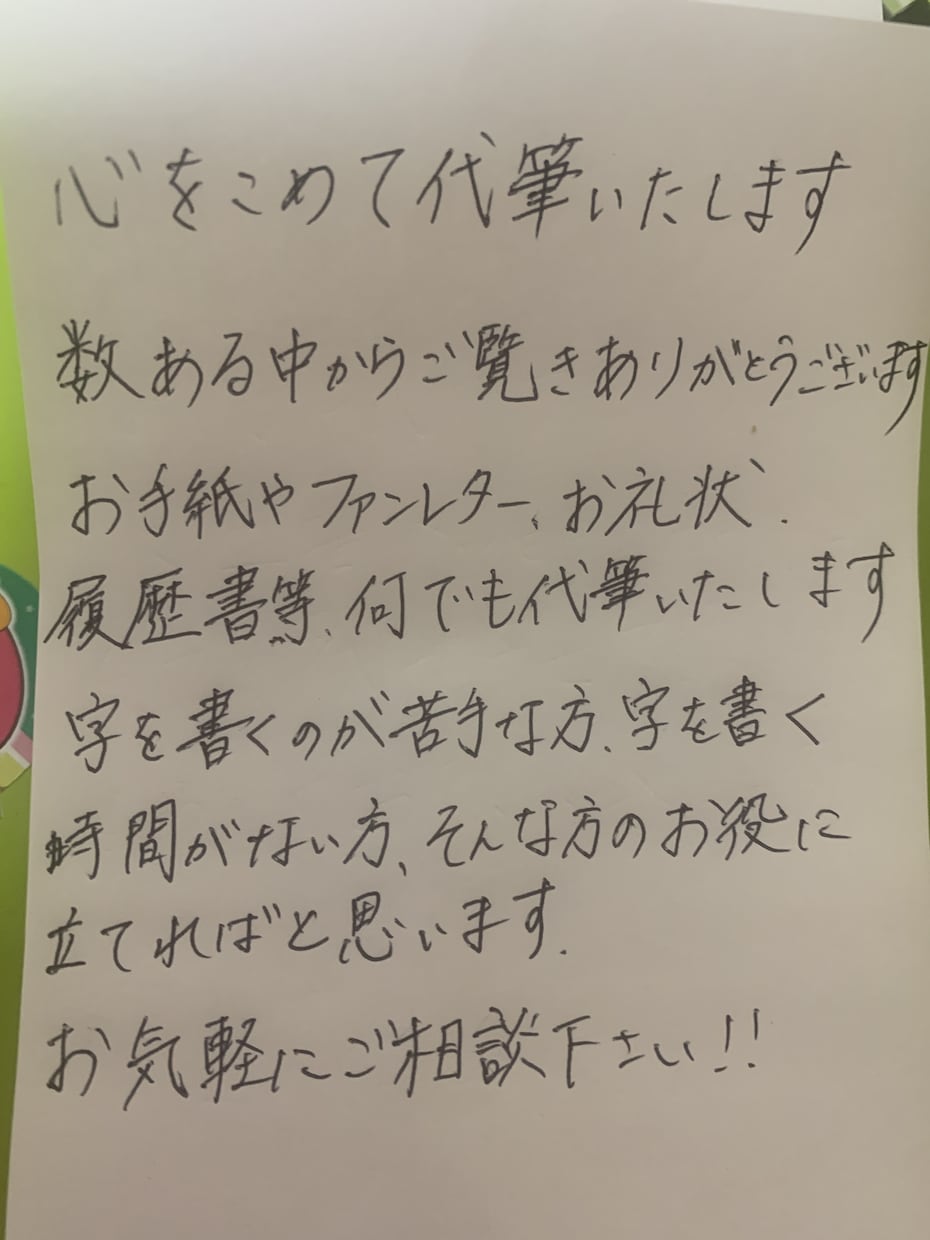 心をこめて代筆いたします
数ある中からご覧きありがとうございます
お手紙やファンレター、お礼状、
履歴書等、何でも代筆いたします
字を書くのが苦手な方、字を書く
時間がない方、そんな方のお役に
立てればと思います.
お気軽にご相談下さい!!